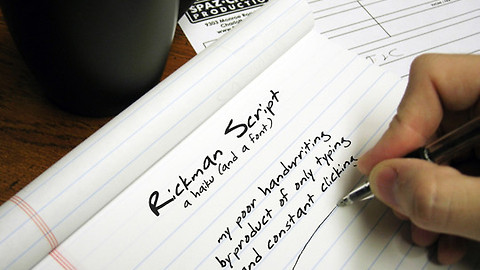 SPAZ
PRODUCTION
9303 Monroe Ro
Rickman Script
a haiku (and a font)
my poor handwriting
byproduct of only typing
and constant clicking